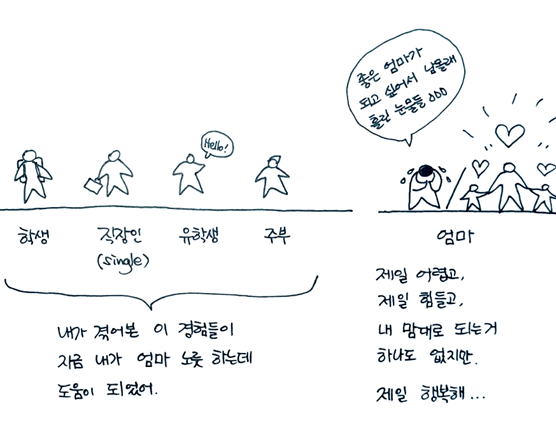 좋은 엄마가
되고 싶어서 남몰래
흘린 눈물들 ooo
Hello!
학생
직장인
(single)
유학생
주부
엄마
내가 겪어본 이 경험들이
지금 내가 엄마 노릇 하는데
도움이 되었어.
제일 어렵고,
제일 힘들고,
내 맘대로 되는거
하나도 없지만.
제일 행복해...